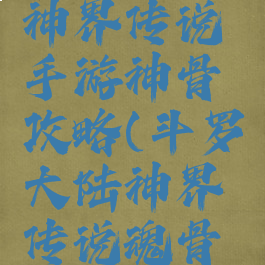 神界传说
手游神骨
攻略(斗罗
大陆神界
传说魂骨